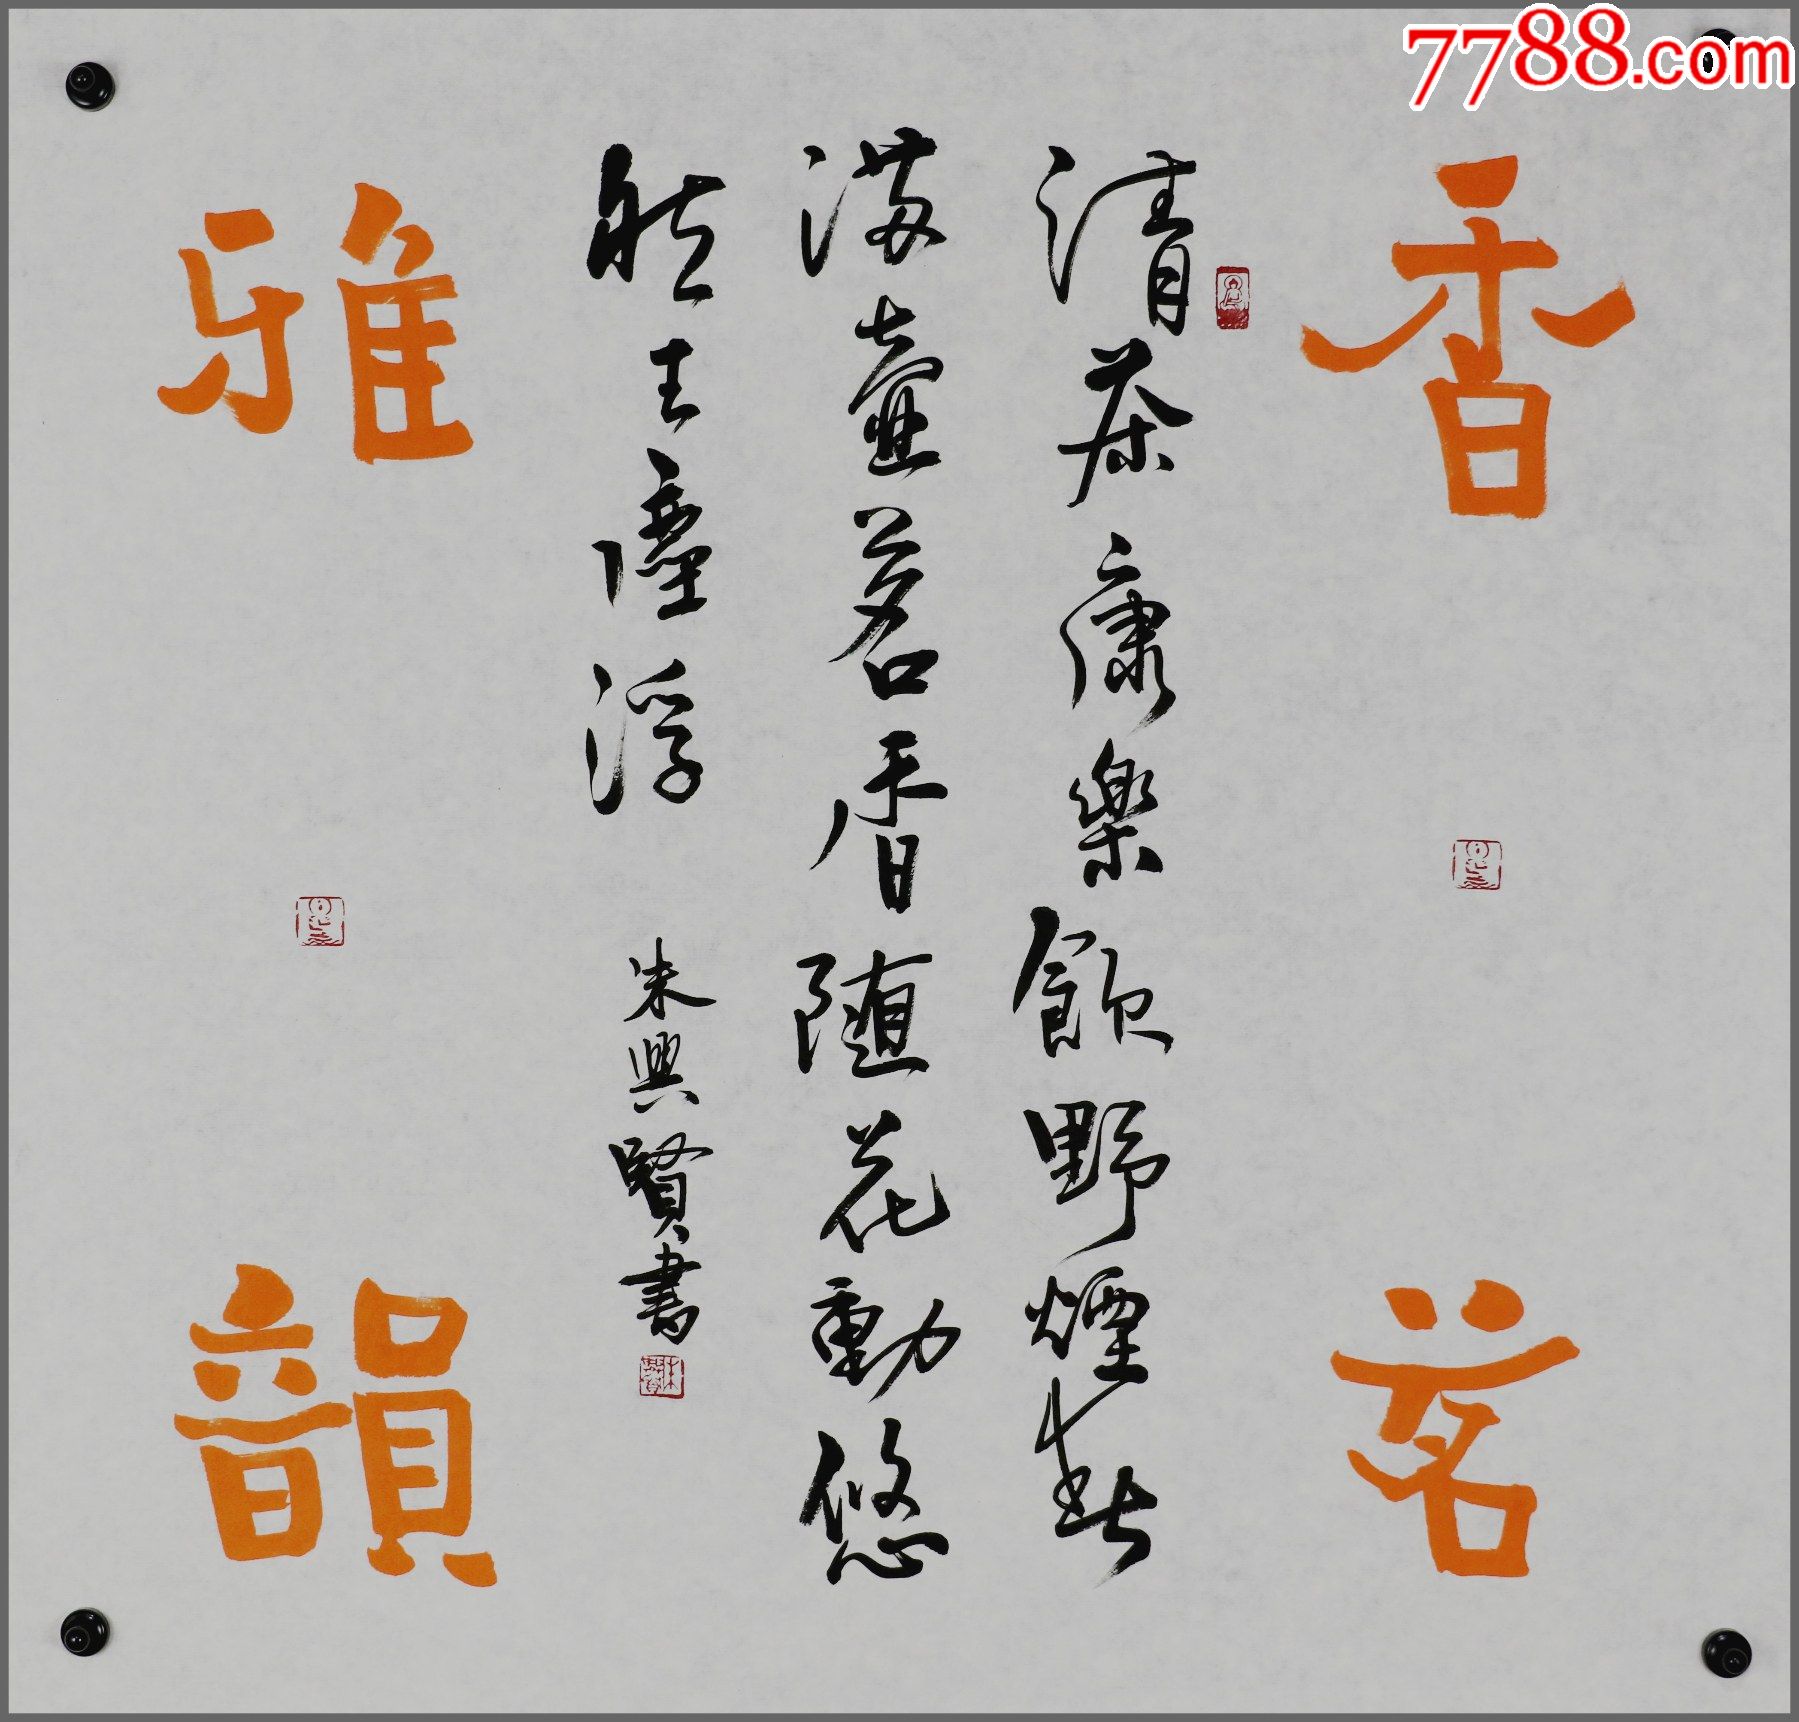 7788.com
香茗
清茶康樂飲野煙
滿壺茗香随花動悠
然去塵浮
朱興賢書
雅韻